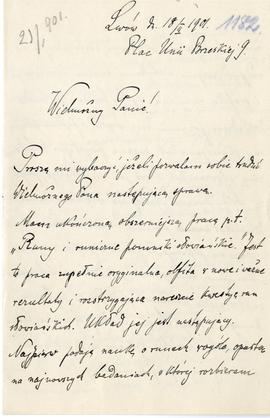 Lwów d. 18/X 1901.
1182.
21/x 901.
Plac Unii Brzeskiej 9.
Wielmożny Panie!
Proszę mi wybaczyć, jeżeli pozwalam sobie trudzić
Wielmożnego Pana następującą sprawą.
Mam ukończoną obszerniejszą pracę p.t.
„Runy i runiczne pomniki słowiańskie." Jest
to praca zupełnie oryginalna, obfita w nowe i ważne
rezultaty i rozstrzygająca nareszcie kwestyę run
słowiańskich. Układ jej jest następujący.
Najpierw podaję naukę o runach wogóle, opartą
na najnowszych badaniach, w której rozbieram